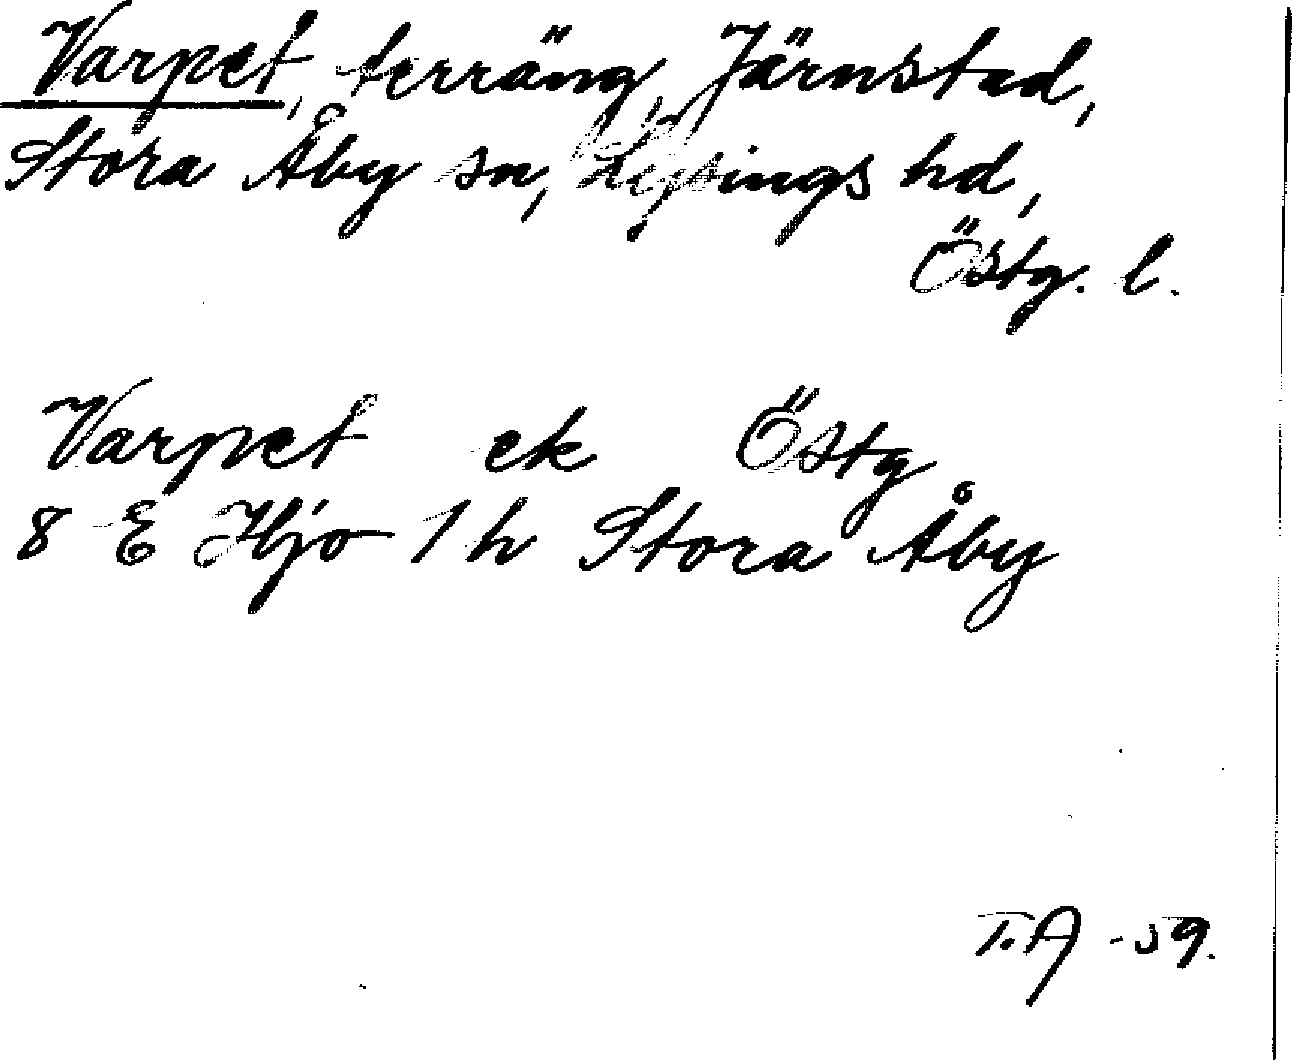 Varpet, terräng, Järnstad,
Stora Åby sn, Lysings hd,
Östg. l.
Varpet ek Östg
8 E Hjo 1 h Stora Åby
T.A -59.